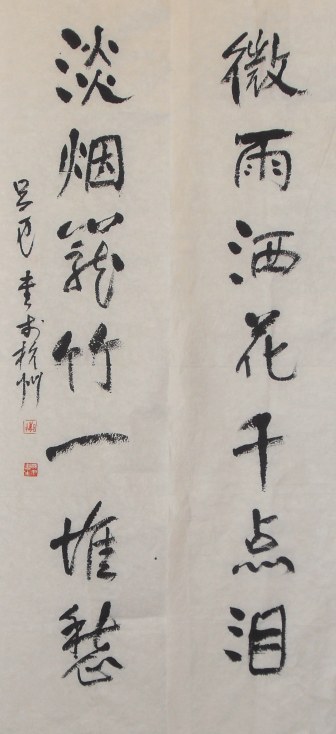 微雨洒花千点泪
淡烟籠竹一堆愁
书於杭州